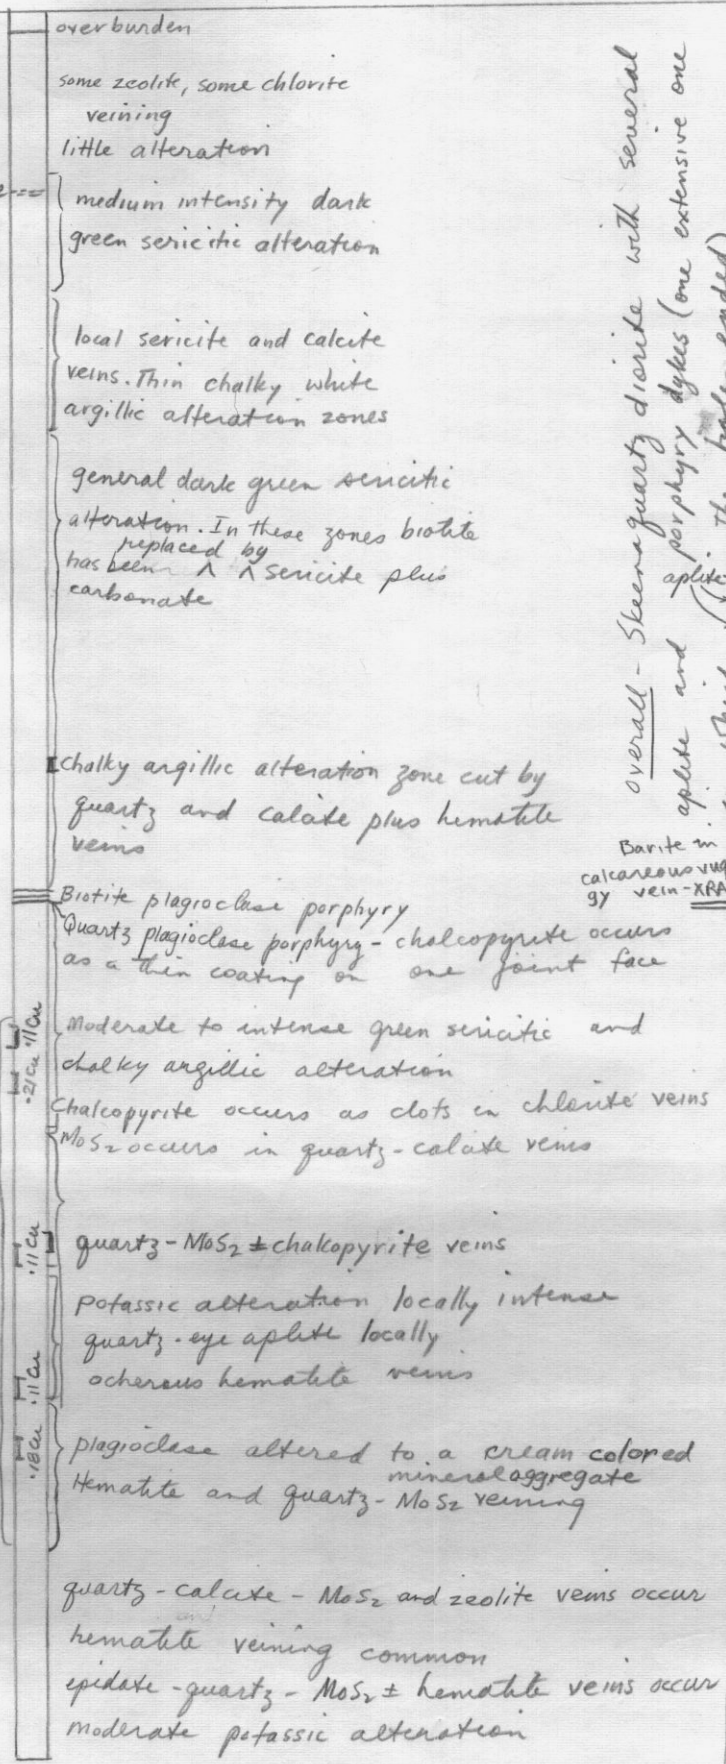 overburden
some zeolite, some chlorite
veining
little alteration
medium intensity dark
green sericitic alteration
local sericite and calcite
veins. Thin chalky white
argillic alteration zones
general dark green sericitic
alteration. In these zones biotite
replaced by
has been ^ ^ sericite plus
carbonate
chalky argillic alteration zone cut by
quartz and calcite plus hematite
veins
Biotite plagioclase porphyry
Quartz plagioclase porphyry - chalcopyrite occurs
as a thin coating on one joint face
Moderate to intense green sericitic and
chalky argillic alteration
Chalcopyrite occurs as clots in chlorite veins
MoS2 occurs in quartz-calcite veins
quartz-MoS2 ± chalcopyrite veins
Potassic alteration locally intense
quartz-eye aplite locally
ocherous hematite veins
plagioclase altered to a cream colored
mineral aggregate
Hematite and quartz-MoS2 veining
quartz-calcite-MoS2 and zeolite veins occur
hematite veining common
epidote-quartz-MoS2 ± hematite veins occur
moderate potassic alteration
.11 Cu
.21 Cu
.11 Cu
.11 Cu
.18 Cu
overall - Skeena quartz diorite with several
aplite and porphyry dykes (one extensive one
aplite
hole ended)
Barite in
calcareous vug
gy vein-XRA